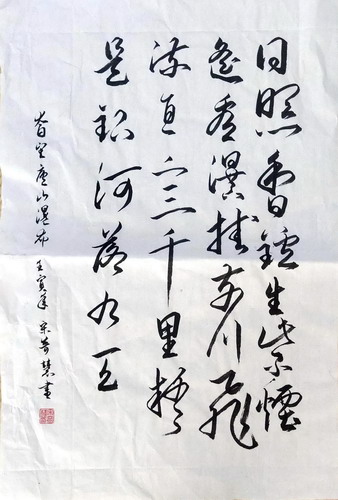 日照香鑪生紫煙
遙看瀑掛前川飛
流直下三千里疑
是銀河落九天
李白望廬山瀑布 壬寅年 宋慧書